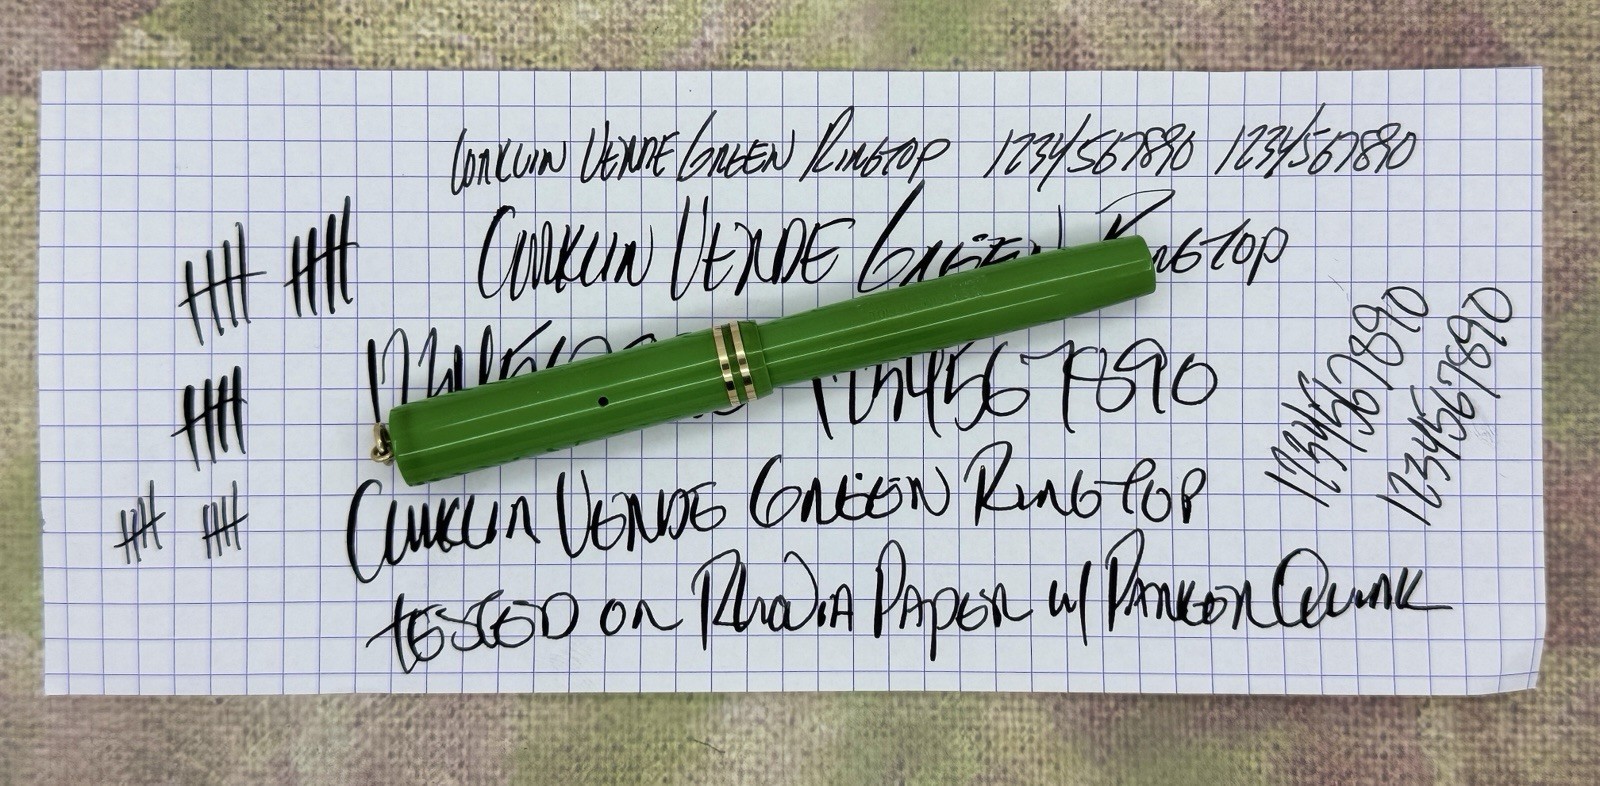 Conklin Verde Green Ringtop 1234567890 1234567890
Conklin Verde Green Ringtop
1234567890
1234567890
1234567890
Conklin Verde Green Ringtop
tested on Rhodia Paper w/ Parker Quink